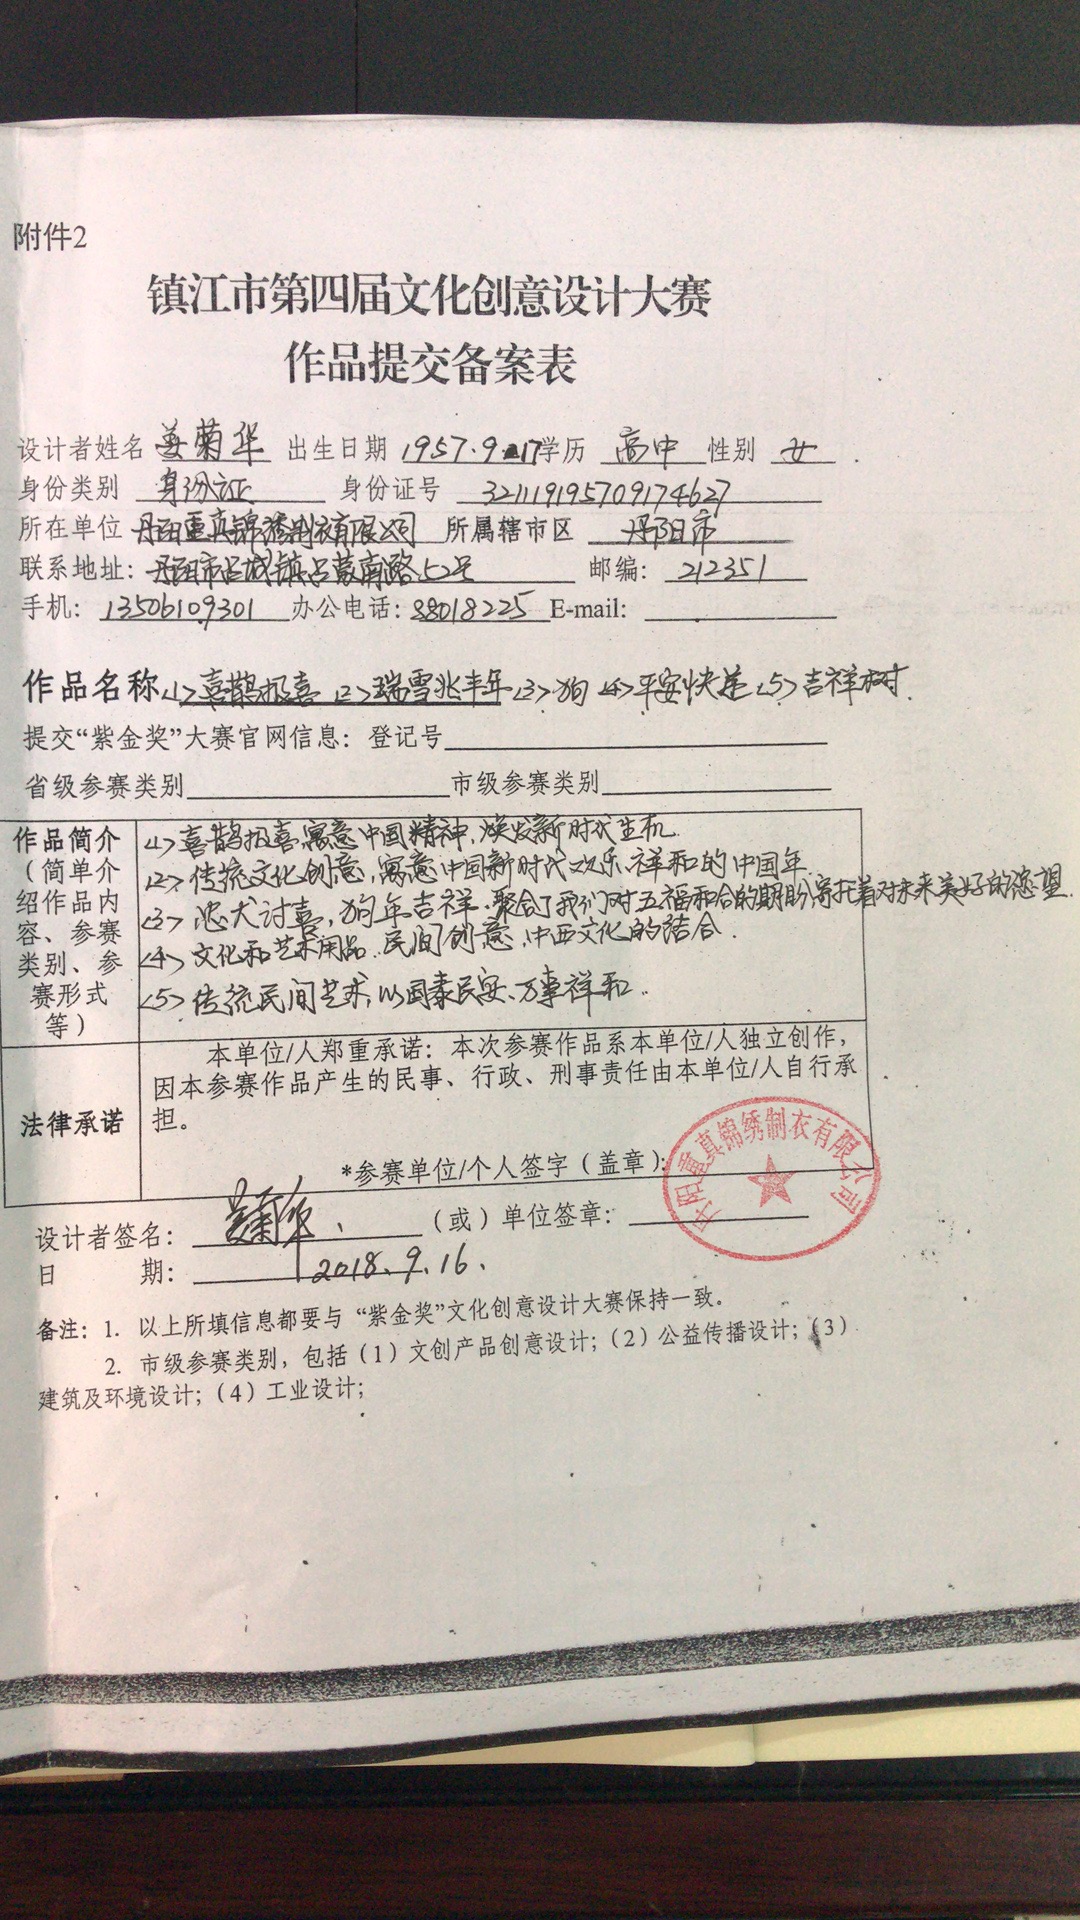 附件2
镇江市第四届文化创意设计大赛
作品提交备案表
设计者姓名 姜菊华 出生日期 1957.9.17 学历 高中 性别 女
身份类别 身份证 身份证号 321119195709174627
所在单位 丹阳重真锦绣制衣有限公司 所属辖市区 丹阳市
联系地址：丹阳市吕城镇吕蒙南路52号 邮编：212351
手机：13506109301 办公电话：88018225 E-mail:
作品名称<1>喜鹊报喜<2>瑞雪兆丰年<3>狗<4>平安快递<5>吉祥树
提交“紫金奖”大赛官网信息：登记号
省级参赛类别 市级参赛类别
作品简介（简单介绍作品内容、参赛类别、参赛形式等）
<1>喜鹊报喜,寓意中国精神,焕发新时代生机
<2>传统文化创意,寓意中国新时代欢乐.祥和的中国年
<3>忠犬讨喜,狗年吉祥.聚合了我们对五福和合的期盼寄托着对未来美好的愿望.
<4>文化和艺术用品.民间创意.中西文化的结合.
<5>传统民间艺术,以国泰民安、万事祥和..
法律承诺
本单位/人郑重承诺：本次参赛作品系本单位/人独立创作，
因本参赛作品产生的民事、行政、刑事责任由本单位/人自行承
担。
*参赛单位/个人签字（盖章）：
丹阳重真锦绣制衣有限公司
设计者签名：姜菊华 （或）单位签章：
日 期：2018.9.16.
备注：1. 以上所填信息都要与“紫金奖”文化创意设计大赛保持一致。
2. 市级参赛类别，包括（1）文创产品创意设计；（2）公益传播设计；（3）
建筑及环境设计；（4）工业设计；